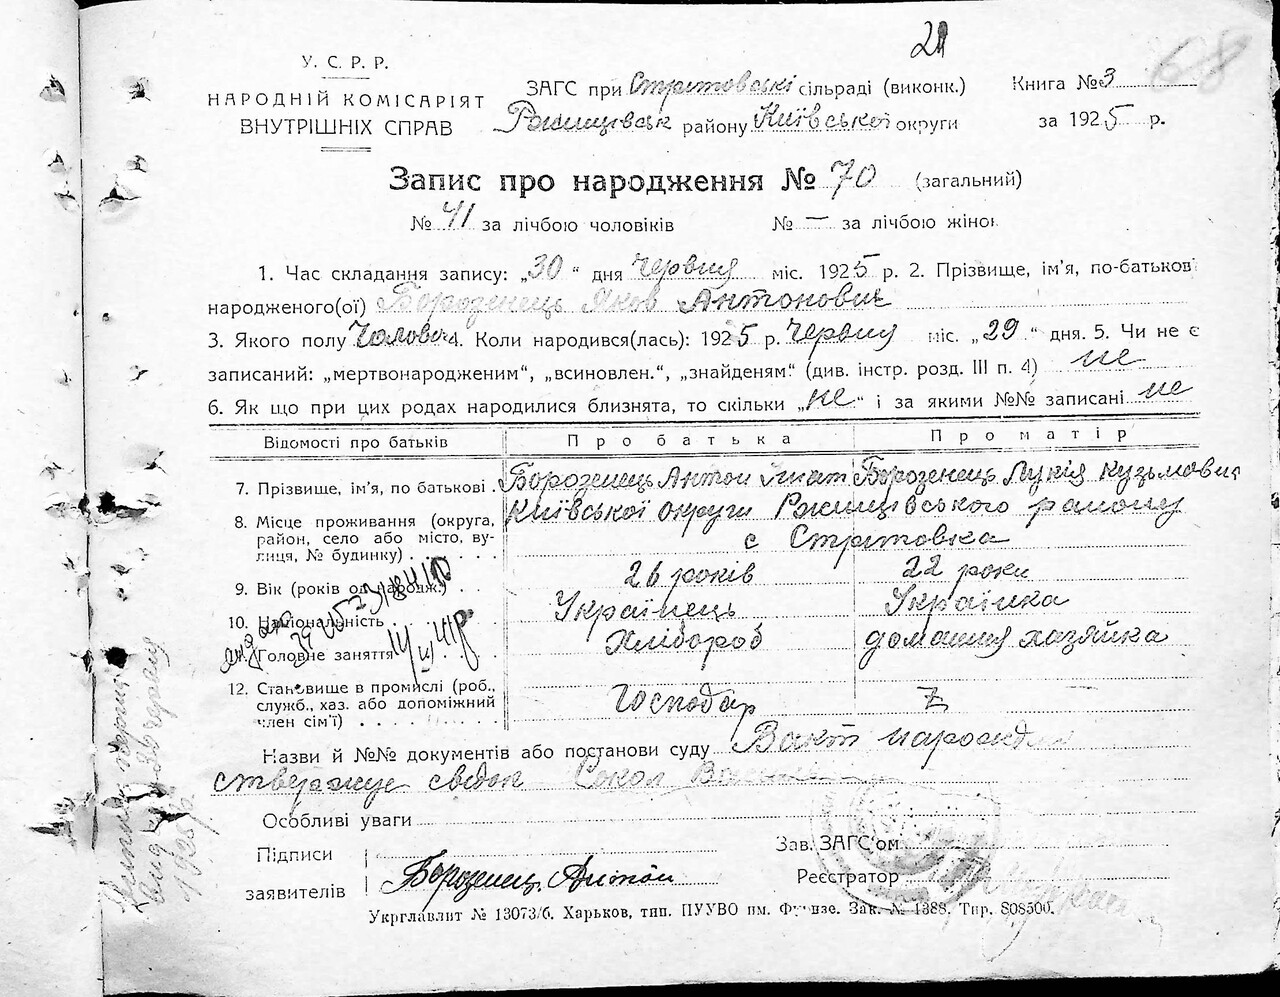 21
68
У. С. Р. Р.
НАРОДНІЙ КОМІСАРІЯТ
ВНУТРІШНІХ СПРАВ
ЗАГС при Стритовські сільраді (виконк.)
Ржищівськ району Київської округи
Книга № 3
за 1925 р.
Запис про народження № 70 (загальний)
№ 41 за лічбою чоловіків № — за лічбою жінок
1. Час складання запису: „30“ дня червня міс. 1925 р. 2. Прізвище, ім'я, по-батькові
народженого(ої) Борозенець Яков Антонович
3. Якого полу Чолові 4. Коли народився(лась): 1925 р. Червня міс. „29“ дня. 5. Чи не є
записаний: „мертвонародженим“, „всиновлен.“, „знайденям“ (див. інстр. розд. III п. 4) не
6. Як що при цих родах народилися близнята, то скільки „не“ і за якими №№ записані не
Відомості про батьків Про батька Про матір
7. Прізвище, ім'я, по батькові Борозенець Антон Ігнат Борозенець Лукія Кузьмовна
8. Місце проживання (округа, район, село або місто, вулиця, № будинку) Київської округи Ржищівського району
с Стритовка
9. Вік (років од народж.) 26 років 22 роки
10. Національність Українець Українка
11. Головне заняття Хлібороб домашня хазяйка
12. Становище в промислі (роб., служб., хаз. або допоміжний член сім'ї) Господар
Назви й №№ документів або постанови суду Вакт народж
стверджує свідок Сокол
Особливі уваги
Підписи
заявителів Борозенец Антон
Зав. ЗАГС'ом
Реєстратор
Укрглавлит № 13073/б. Харьков, тип. ПУУВО им. Фрунзе. Зак. № 1388. Тир. 808500.